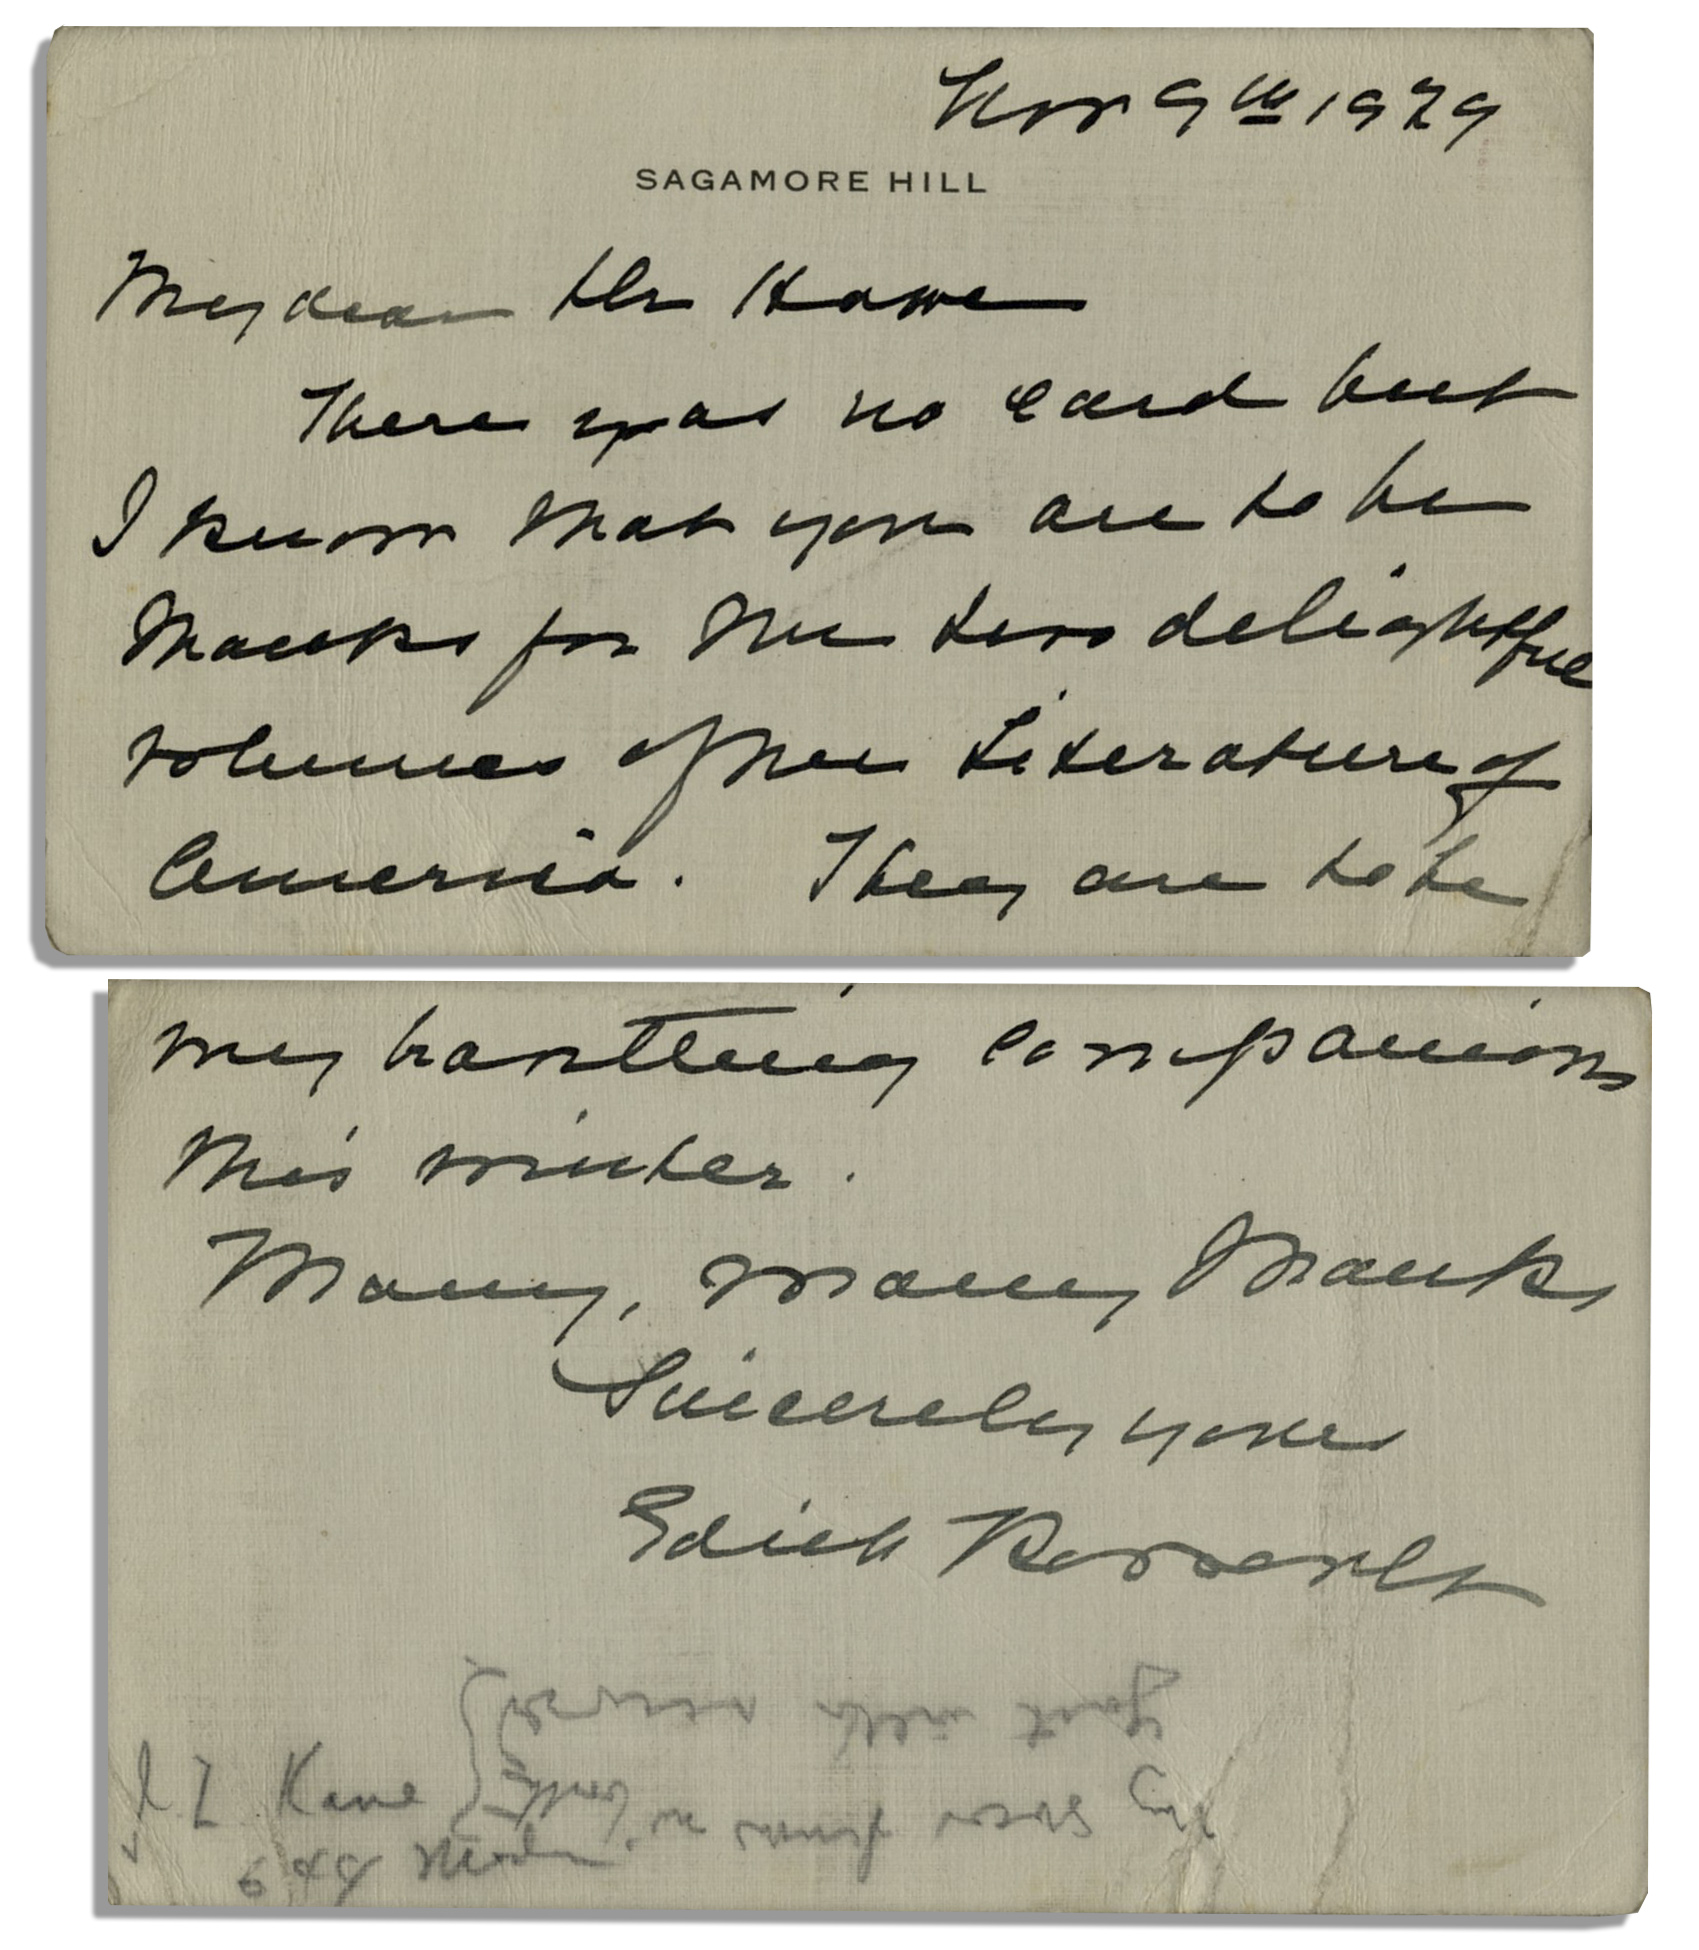 Nov 9th 1929
SAGAMORE HILL
My dear Mr Howe
There was no card but
I know that you are to be
thanks for the two delightful
volumes of the Literature of
America. They are to be
my travelling companions
this winter.
Many, many thanks
Sincerely yours
Edith Roosevelt
Kane